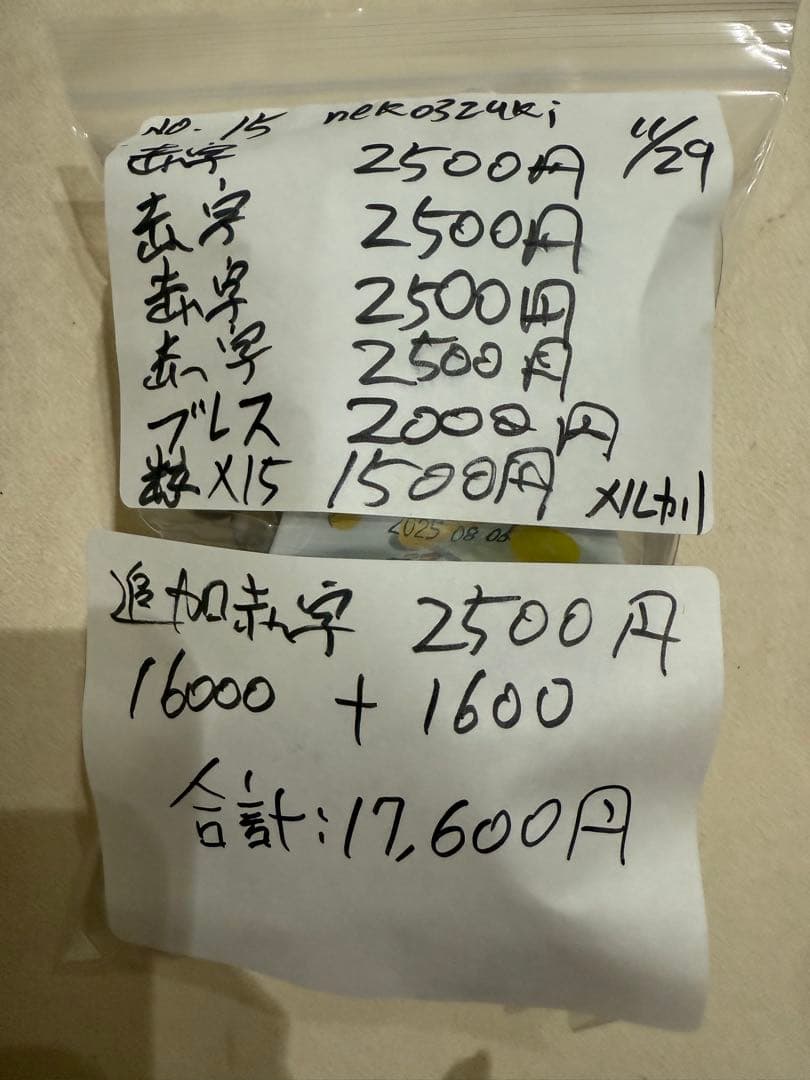 NO. 15 nekoszuki 11/29
赤字 2500円
赤字 2500円
赤字 2500円
赤字 2500円
ブレス 2000円
数×15 1500円 メルカリ
2025 08 06
追加赤字 2500円
16000 + 1600
合計:17,600円